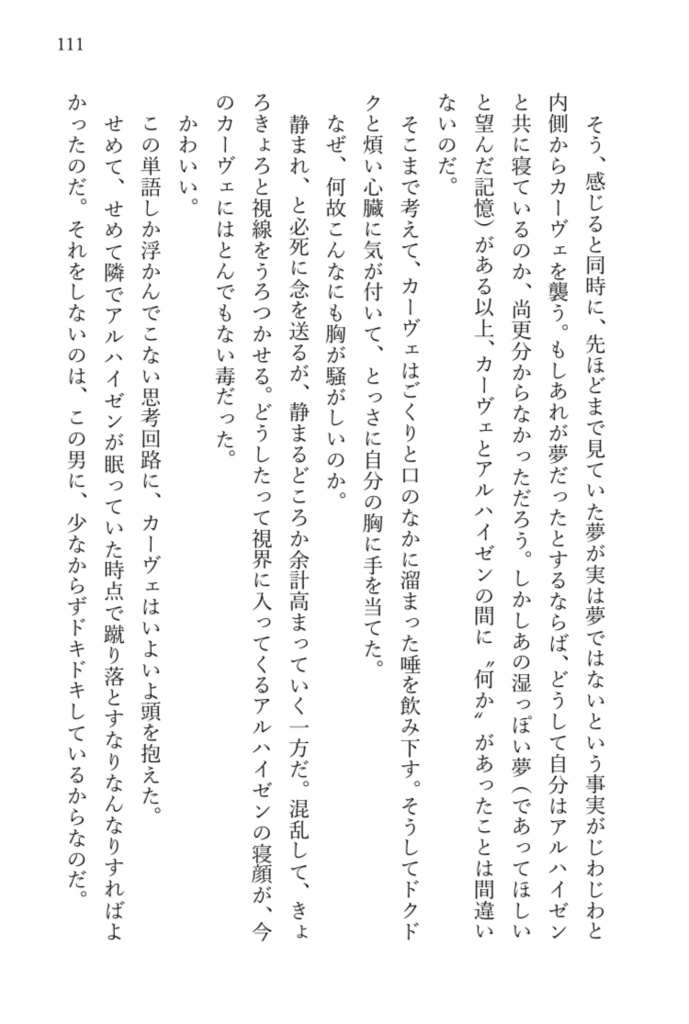 111
そう、感じると同時に、先ほどまで見ていた夢が実は夢ではないという事実がじわじわと
内側からカーヴェを襲う。もしあれが夢だったとするならば、どうして自分はアルハイゼン
と共に寝ているのか、尚更分からなかっただろう。しかしあの湿っぽい夢（であってほしい
と望んだ記憶）がある以上、カーヴェとアルハイゼンの間に〝何か〟があったことは間違い
ないのだ。
そこまで考えて、カーヴェはごくりと口のなかに溜まった唾を飲み下す。そうしてドクド
クと煩い心臓に気が付いて、とっさに自分の胸に手を当てた。
なぜ、何故こんなにも胸が騒がしいのか。
静まれ、と必死に念を送るが、静まるどころか余計高まっていく一方だ。混乱して、きょ
ろきょろと視線をうろつかせる。どうしたって視界に入ってくるアルハイゼンの寝顔が、今
のカーヴェにはとんでもない毒だった。
かわいい。
この単語しか浮かんでこない思考回路に、カーヴェはいよいよ頭を抱えた。
せめて、せめて隣でアルハイゼンが眠っていた時点で蹴り落とすなりなんなりすればよ
かったのだ。それをしないのは、この男に、少なからずドキドキしているからなのだ。